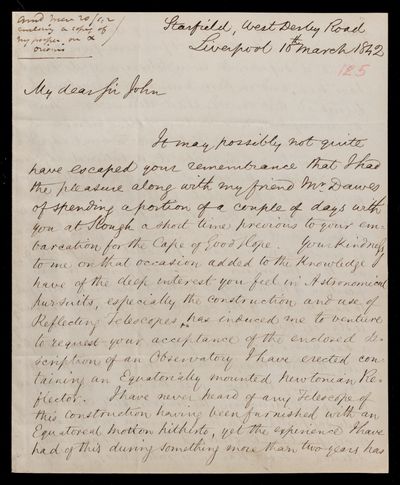 Ansd Mar 20/42
enclosing a copy of
my paper on α
Orionis
Starfield, West Derby Road
Liverpool 18th March 1842
125
My dear Sir John
It may possibly not quite
have escaped your remembrance that I had
the pleasure along with my friend Mr Dawes
of spending a portion of a couple of days with
you at Slough a short time previous to your em-
barcation for the Cape of Good Hope. Your kindness
to me on that occasion added to the knowledge I
have of the deep interest you feel in Astronomical
pursuits, especially the construction and use of
Reflecting Telescopes, has induced me to venture
to request your acceptance of the enclosed de-
scription of an Observatory I have erected con-
taining an Equatorially mounted Newtonian Re-
flector. I have never heard of any Telescope of
this construction having been furnished with an
Equatoreal motion hitherto, yet the experience I have
had of this during something more than two years has